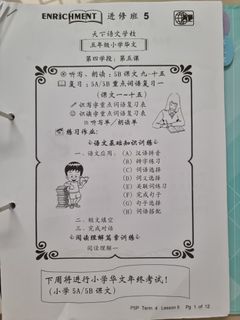 ENRICHMENT 进修班 5
天下语文学校
五年级小学华文
第四学段：第五课
听写、朗读：5B 课文九-十五
复习：5A/5B 重点词语复习一
(课文一-十五)
识写字重点词语复习表
识读字重点词语复习表
听写本/朗读本
练习作业：
语文基础知识训练
一、语文应用：(A) 汉语拼音
(B) 辨字练习
(C) 词语选择
(D) 词义选择
(E) 关联词练习
(F) 完成句子
(G) 句子选择
(H) 词语搭配
二、短文填空
三、完成对话
阅读理解篇章训练
阅读理解一
下周将进行小学华文年终考试！
(小学 5A/5B 课文)
P5P Term 4 Lesson 5 Pg 1 of 12